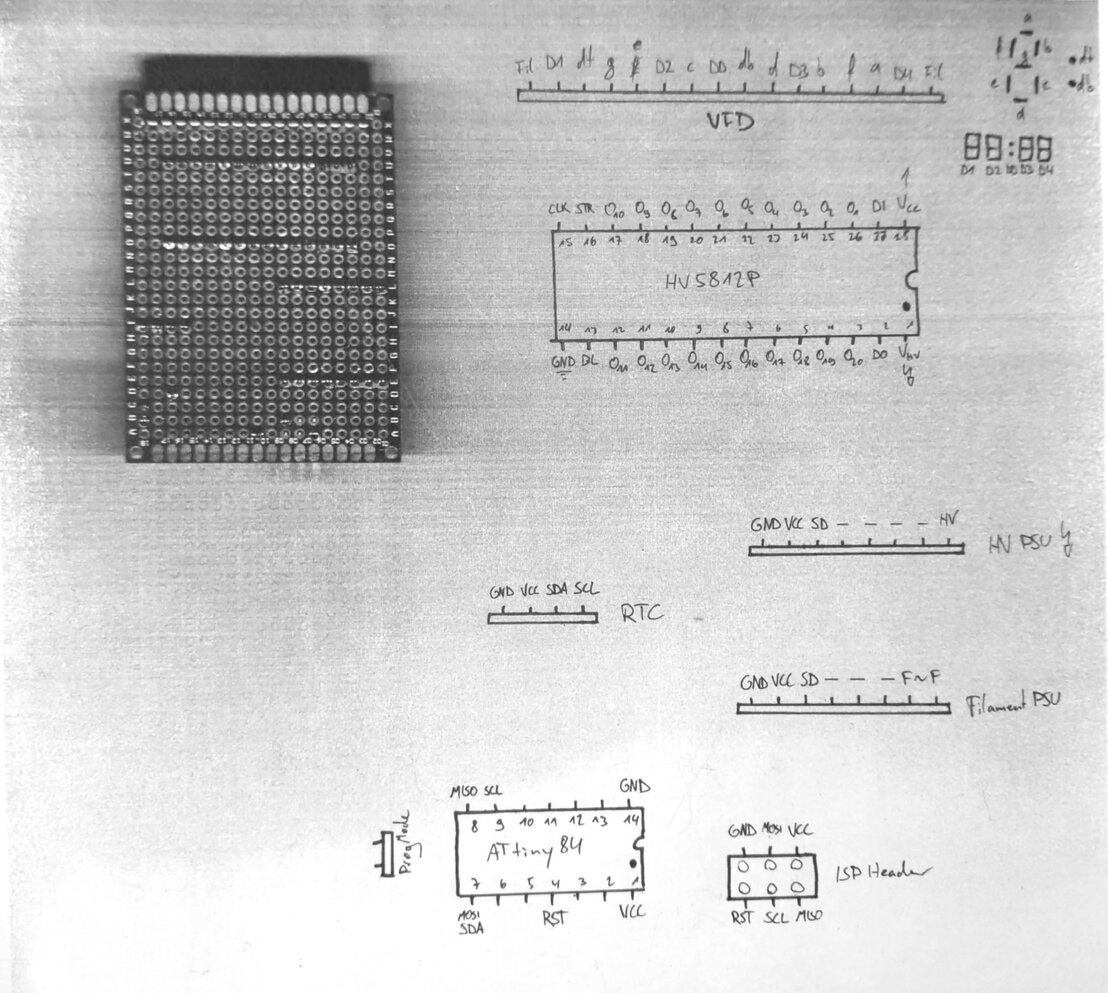 a
f b
g
e c
d
dt
db
Fil D1 dt g e D2 c DD db d D3 b f a D4 Fil
VFD
D1 D2 DD D3 D4
CLK STR O10 O9 O8 O7 O6 O5 O4 O3 O2 O1 DI VCC
15 16 17 18 19 20 21 22 23 24 25 26 27 28
HV5812P
14 13 12 11 10 9 8 7 6 5 4 3 2 1
GND BL O11 O12 O13 O14 O15 O16 O17 O18 O19 O20 DO VHV
GND VCC SD – – – – HV
HV PSU
GND VCC SDA SCL
RTC
GND VCC SD – – – F~F
Filament PSU
MISO SCL GND
8 9 10 11 12 13 14
ATtiny84
7 6 5 4 3 2 1
MOSI RST VCC
SDA
Prog Mode
GND MOSI VCC
ISP Header
RST SCL MISO